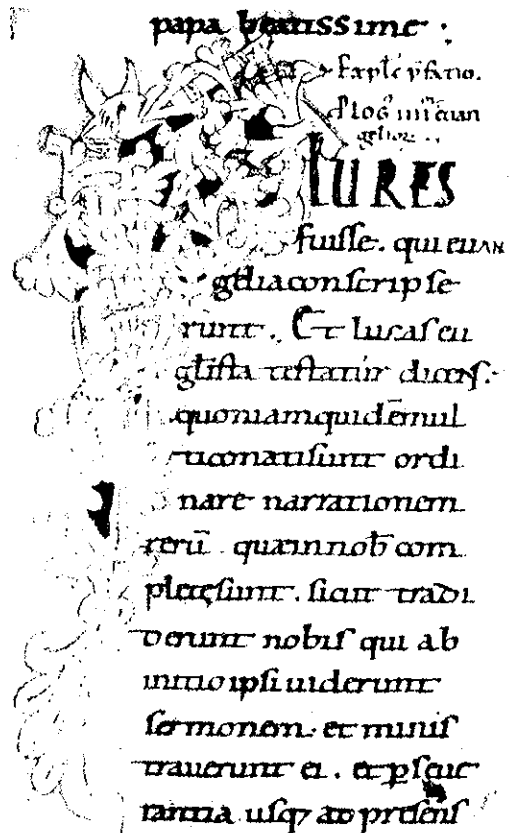 papa beatissime.
Explē p̄fatio.
Ploḡ iiiiͬ euan
gelior̄.
LURES
fuisse. qui euan
gelia conscripse
runt. Et lucas eu
gl̄ista testatur dicens.
quoniam quidē mul
ti conati sunt ordi
nare narrationem
rerū quę in nob̄ com
pletę sunt. sicut tradi
derunt nobis qui ab
initio ipsi uiderunt
sermonem. et minis
trauerunt ei. et ꝑseue
rantia usq; ad presens